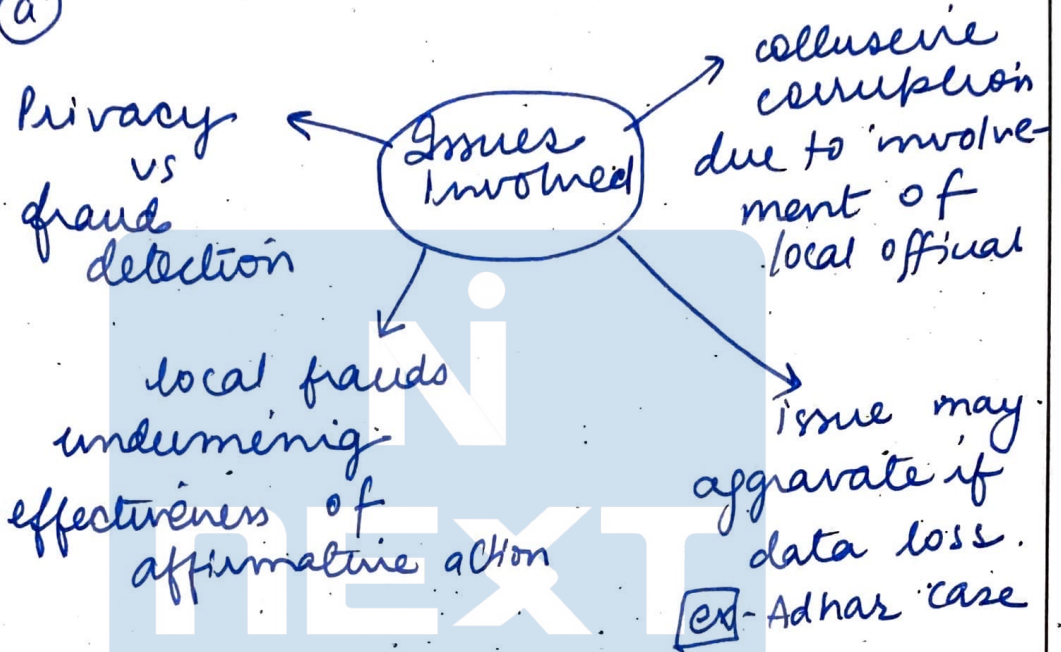 a
Issues
Involved
Privacy
vs
fraud
detection
collusive
corruption
due to involve-
ment of
local offical
local frauds
undermining
effectiveness of
affirmative action
issue may
aggravate if
data loss.
ex - Adhar case
Ni
NEXT